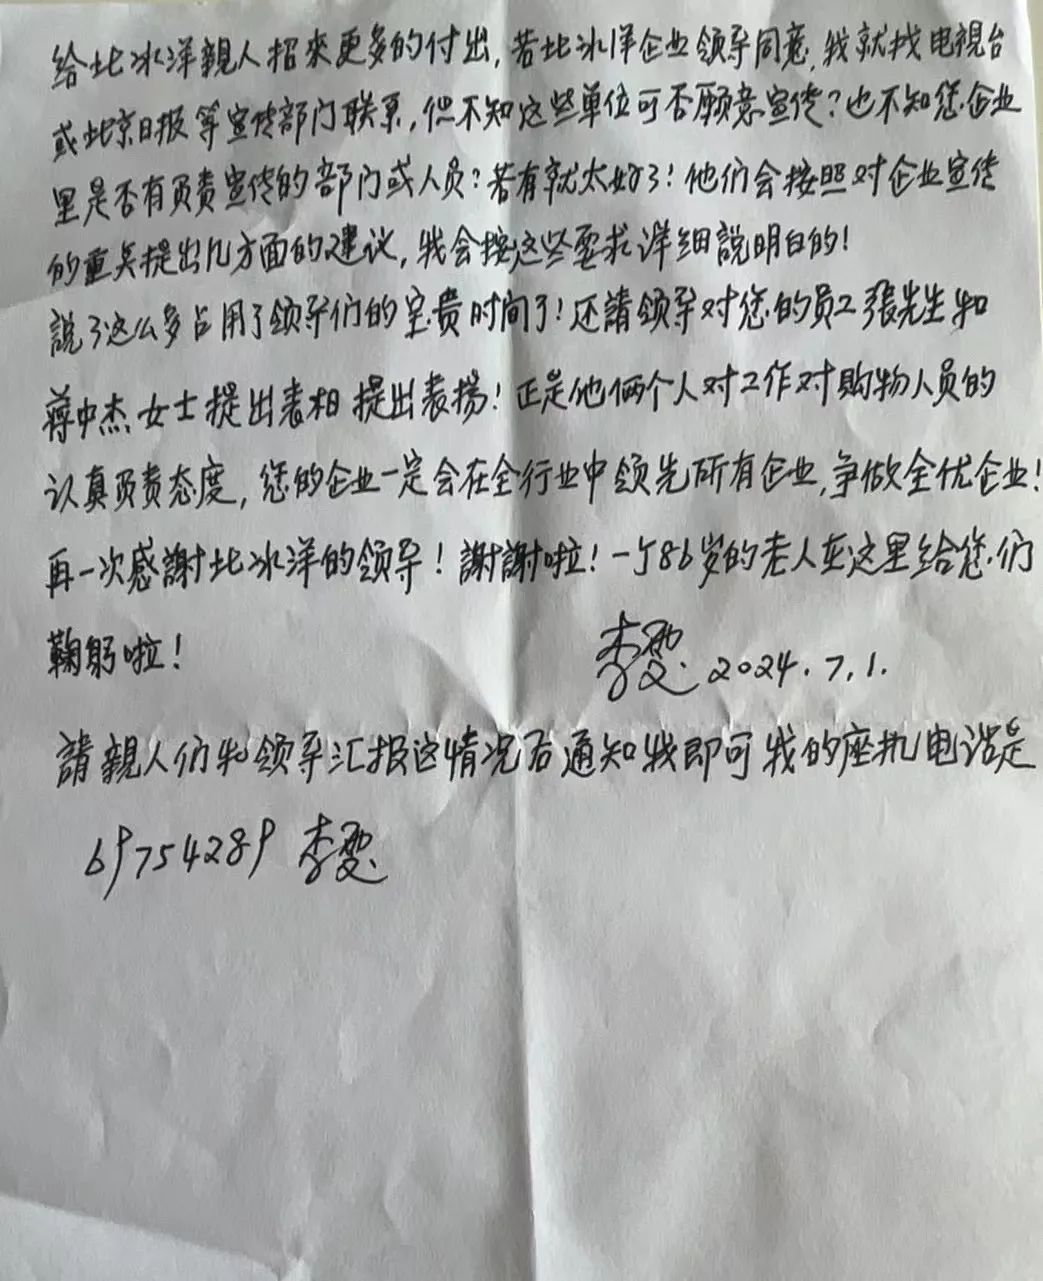 给北冰洋親人招来更多的付出,若北冰洋企业领导同意,我就找电視台
或北京日报等宣传部门联系,但不知这些单位可否願意宣传?也不知您企业
里是否有负责宣传的部门或人员?若有就太好了!他们会按照对企业宣传
的重点提出几方面的建议,我会按这些要求详细說明白的!
說了这么多占用了领导们的宝贵时间了!还請领导对您的员工張先生和
蒋中杰女士提出表相提出表揚!正是他俩个人对工作对购物人员的
认真负责态度,您的企业一定会在全行业中领先所有企业,争做全优企业!
再一次感謝北冰洋的领导!謝謝啦!一个86岁的老人在这里给您们
鞠躬啦!
李雯 2024.7.1.
請親人们和领导汇报这情况后通知我即可我的座机电话是
69754289 李雯